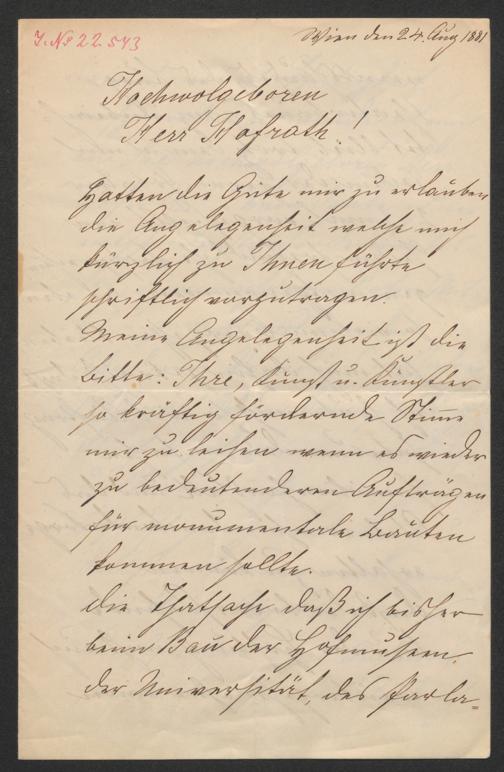 J. No 22.543
Wien den 24. Aug 1881
Hochwolgeboren
Herr Hofrath!
Hatten die Güte mir zu erlauben
die Angelegenheit welche mich
kürzlich zu Ihnen führte
schriftlich vorzutragen.
Meine Angelegenheit ist die
Bitte: Ihre, Kunst u. Künstler
so kräftig fördernde Stimme
mir zu leihen wenn es wieder
zu bedeutenderen Aufträgen
für monumentale Bauten
kommen sollte.
Die Thatsache daß ich bisher
beim Bau der Hofmuseen,
der Universität, des Parla=